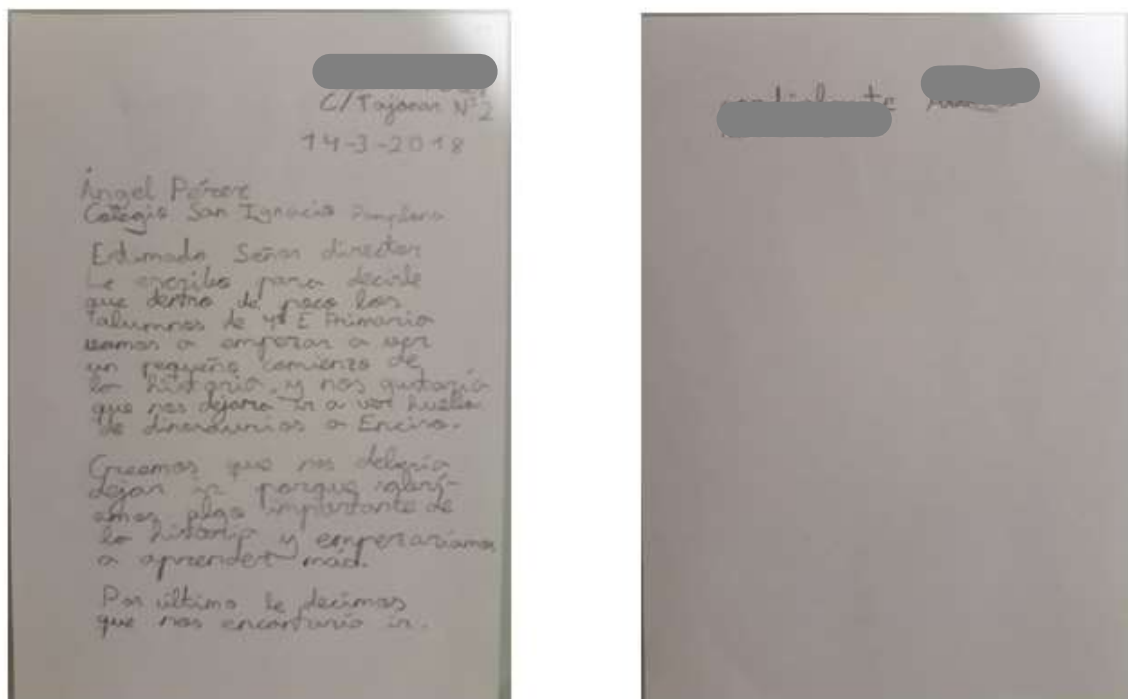 C/Tajonar
Nº2
14-3-2018
Ángel Pérez
Colegio San Ignacio Pamplona
Estimado Señor director
Le escribo para decirle
que dentro de poco los
alumnos de 4º E Primaria
vamos a empezar a ver
un pequeño comienzo de
la historia, y nos gustaría
que nos dejara ir a ver huellas
de dinosaurios a Enciso.
Creemos que nos debería
dejar ir porque
amos algo importante de
la historia y empezariamos
a aprender más.
Por último le decimos
que nos encantaría ir.